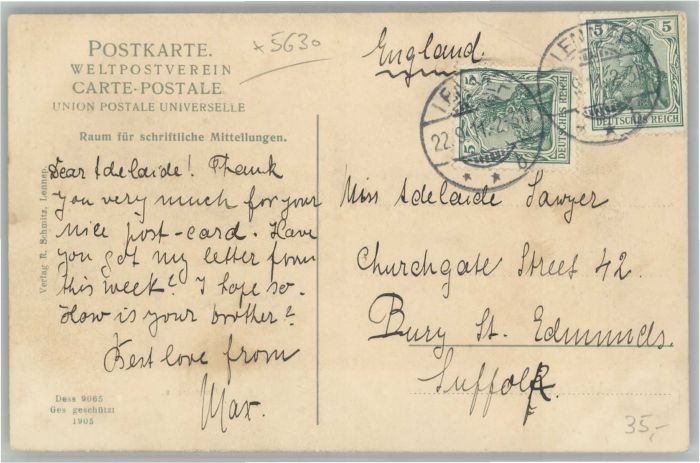 POSTKARTE.
WELTPOSTVEREIN
CARTE-POSTALE
UNION POSTALE UNIVERSELLE
Raum für schriftliche Mitteilungen.
x 5630
England.
5 5
DEUTSCHES REICH
5
DEUTSCHES REICH
LENNEP
Dear Adelaide! Thank
you very much for your
nice post-card. Have
you got my letter from
this week? I hope so.
How is your brother?
Best love from
Max.
Miss Adelaide Sawyer
Churchgate Street 42.
Bury St. Edmunds.
Suffolk.
Verlag R. Schmitz, Lennep.
Dess 9065
Ges geschützt
1905
35,-